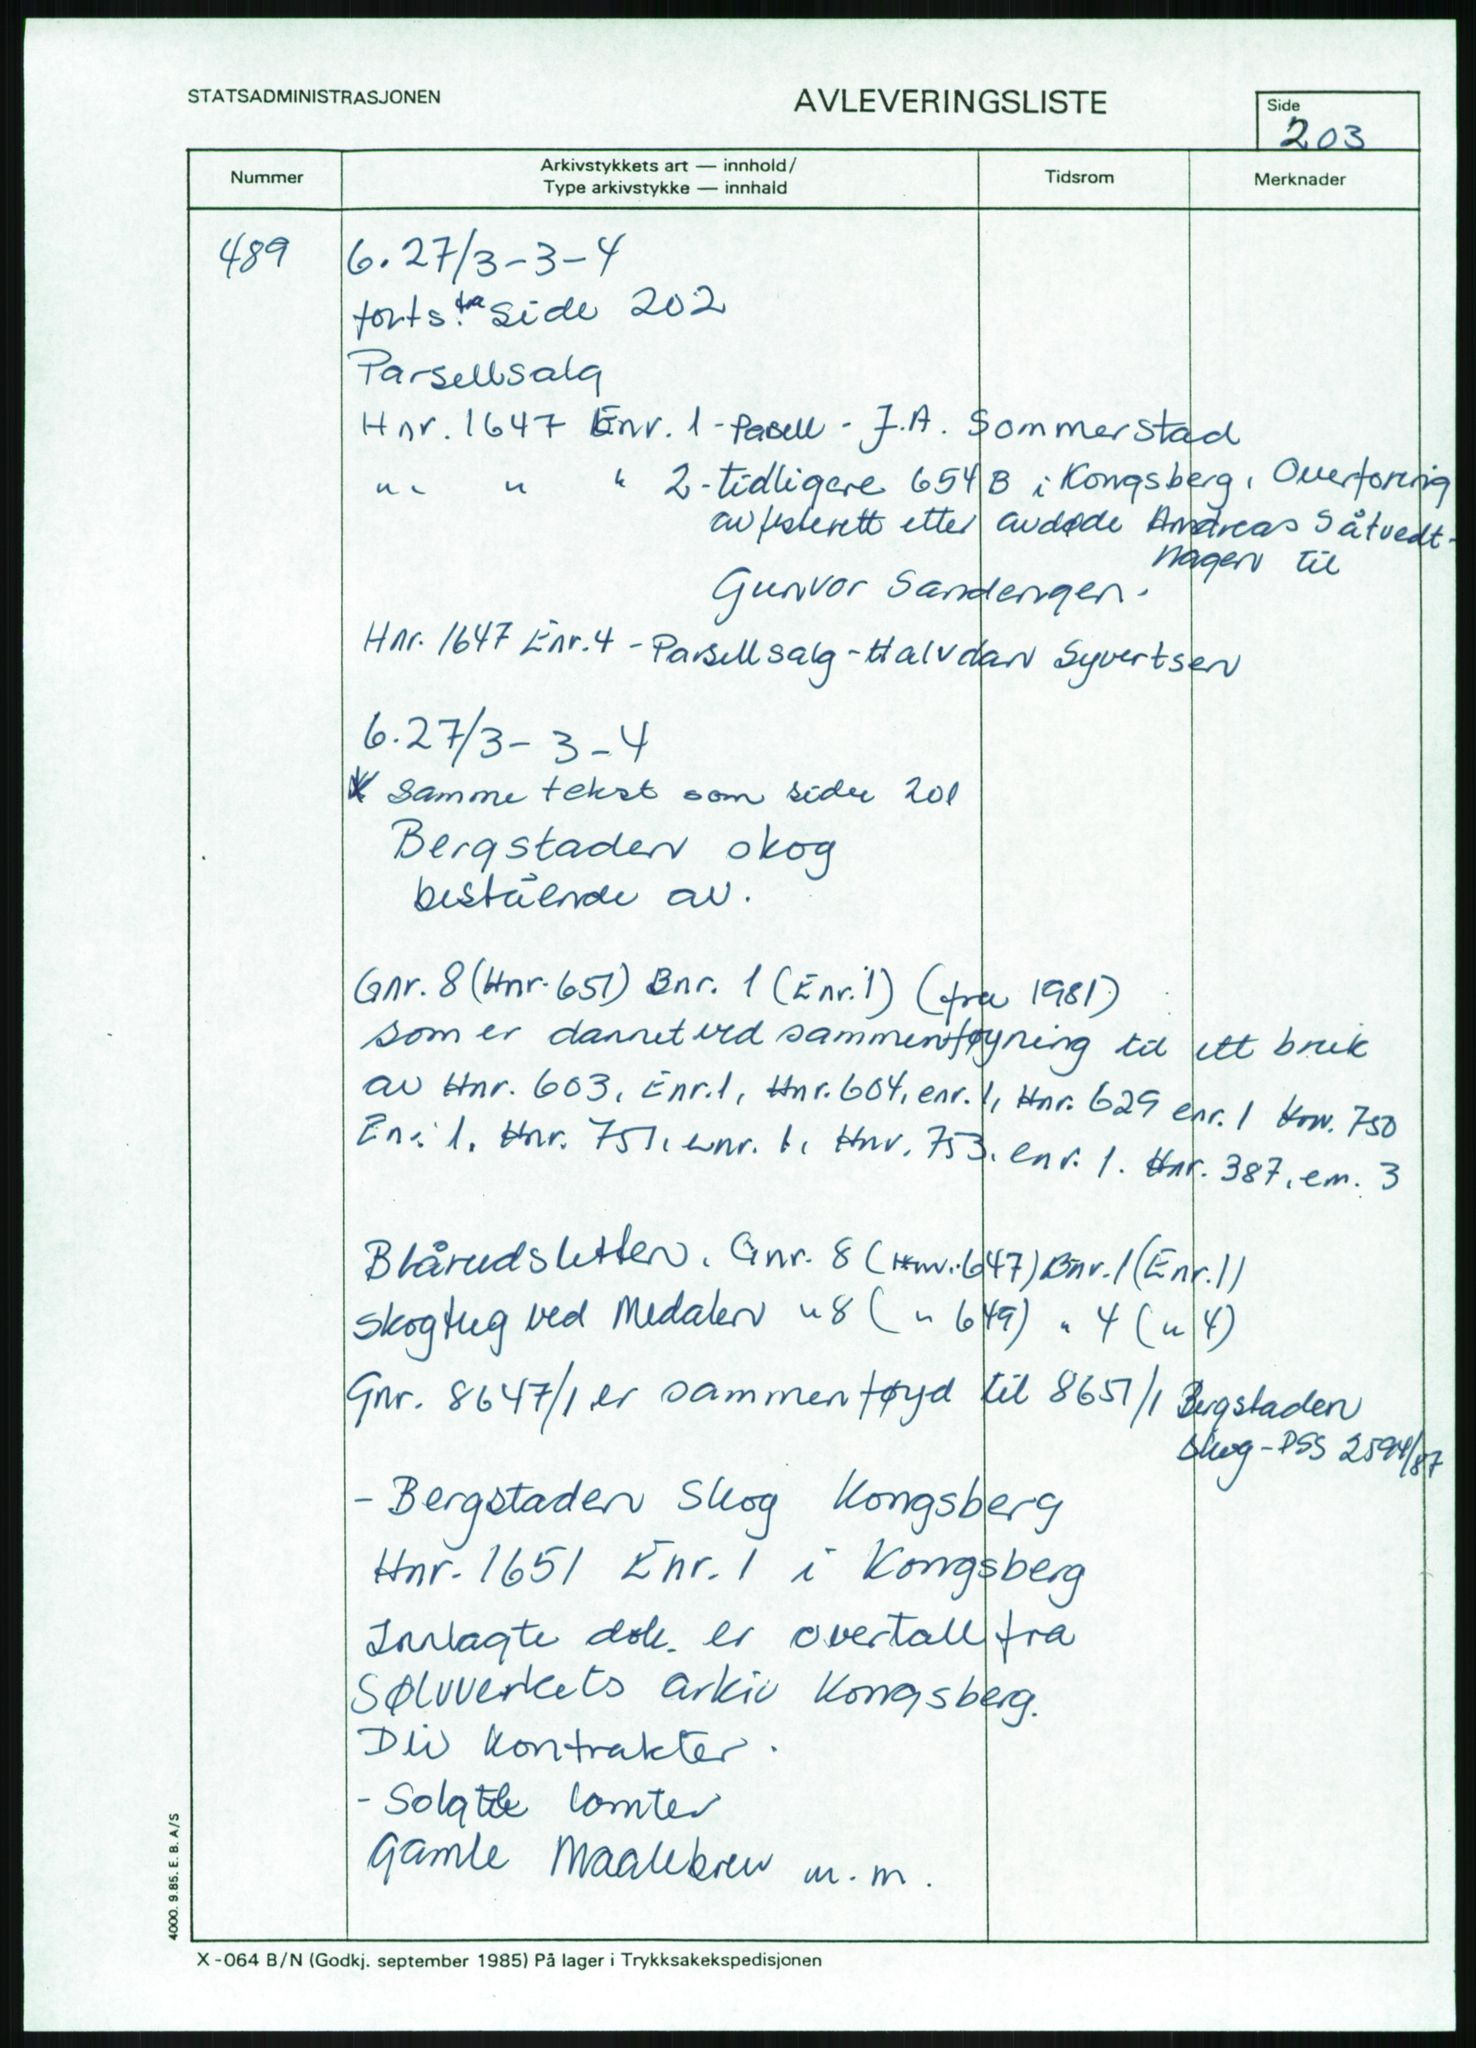 STATSADMINISTRASJONEN
AVLEVERINGSLISTE
Side
203
Nummer
Arkivstykkets art — innhold/
Type arkivstykke — innhald
Tidsrom
Merknader
489
6.27/3-3-4
forts. fra side 202
Parsellsalg
Hnr. 1647 Enr. 1 - Pasell - J.A. Sommerstad
" " " 2 - tidligere 654 B i Kongsberg, Overføring
av festerett etter avdøde Andreas Såtvedt-
hagen til
Gunvor Sandengen.
Hnr. 1647 Enr. 4 - Parsellsalg - Halvdan Syvertsen
6.27/3-3-4
samme tekst som side 201
Bergstaden skog
bestående av.
Gnr. 8 (Hnr. 651) Bnr. 1 (Enr. 1) (fra 1981)
som er dannet ved sammenføyning til ett bruk
av Hnr. 603, Enr. 1, Hnr. 604, enr. 1, Hnr. 629 enr. 1 Hnr. 750
Enr. 1, Hnr. 751, enr. 1, Hnr. 753, enr. 1. Hnr. 387, enr. 3
Blårudsletten. Gnr. 8 (Hnr. 647) Bnr. 1 (Enr. 1)
skogteig ved Medalen " 8 ( " 649) " 4 ( " 4)
Gnr. 8647/1 er sammenføyd til 8651/1 Bergstaden
Skog - PSS 2594/87
- Bergstaden Skog Kongsberg
Hnr. 1651 Enr. 1 i Kongsberg
Innlagte dok. er overtall fra
Sølvverkets arkiv Kongsberg.
Div kontrakter.
- Solgte tomter
Gamle Maalebrev m.m.
4000. 9.85. E. B. A/S
X-064 B/N (Godkj. september 1985) På lager i Trykksakekspedisjonen